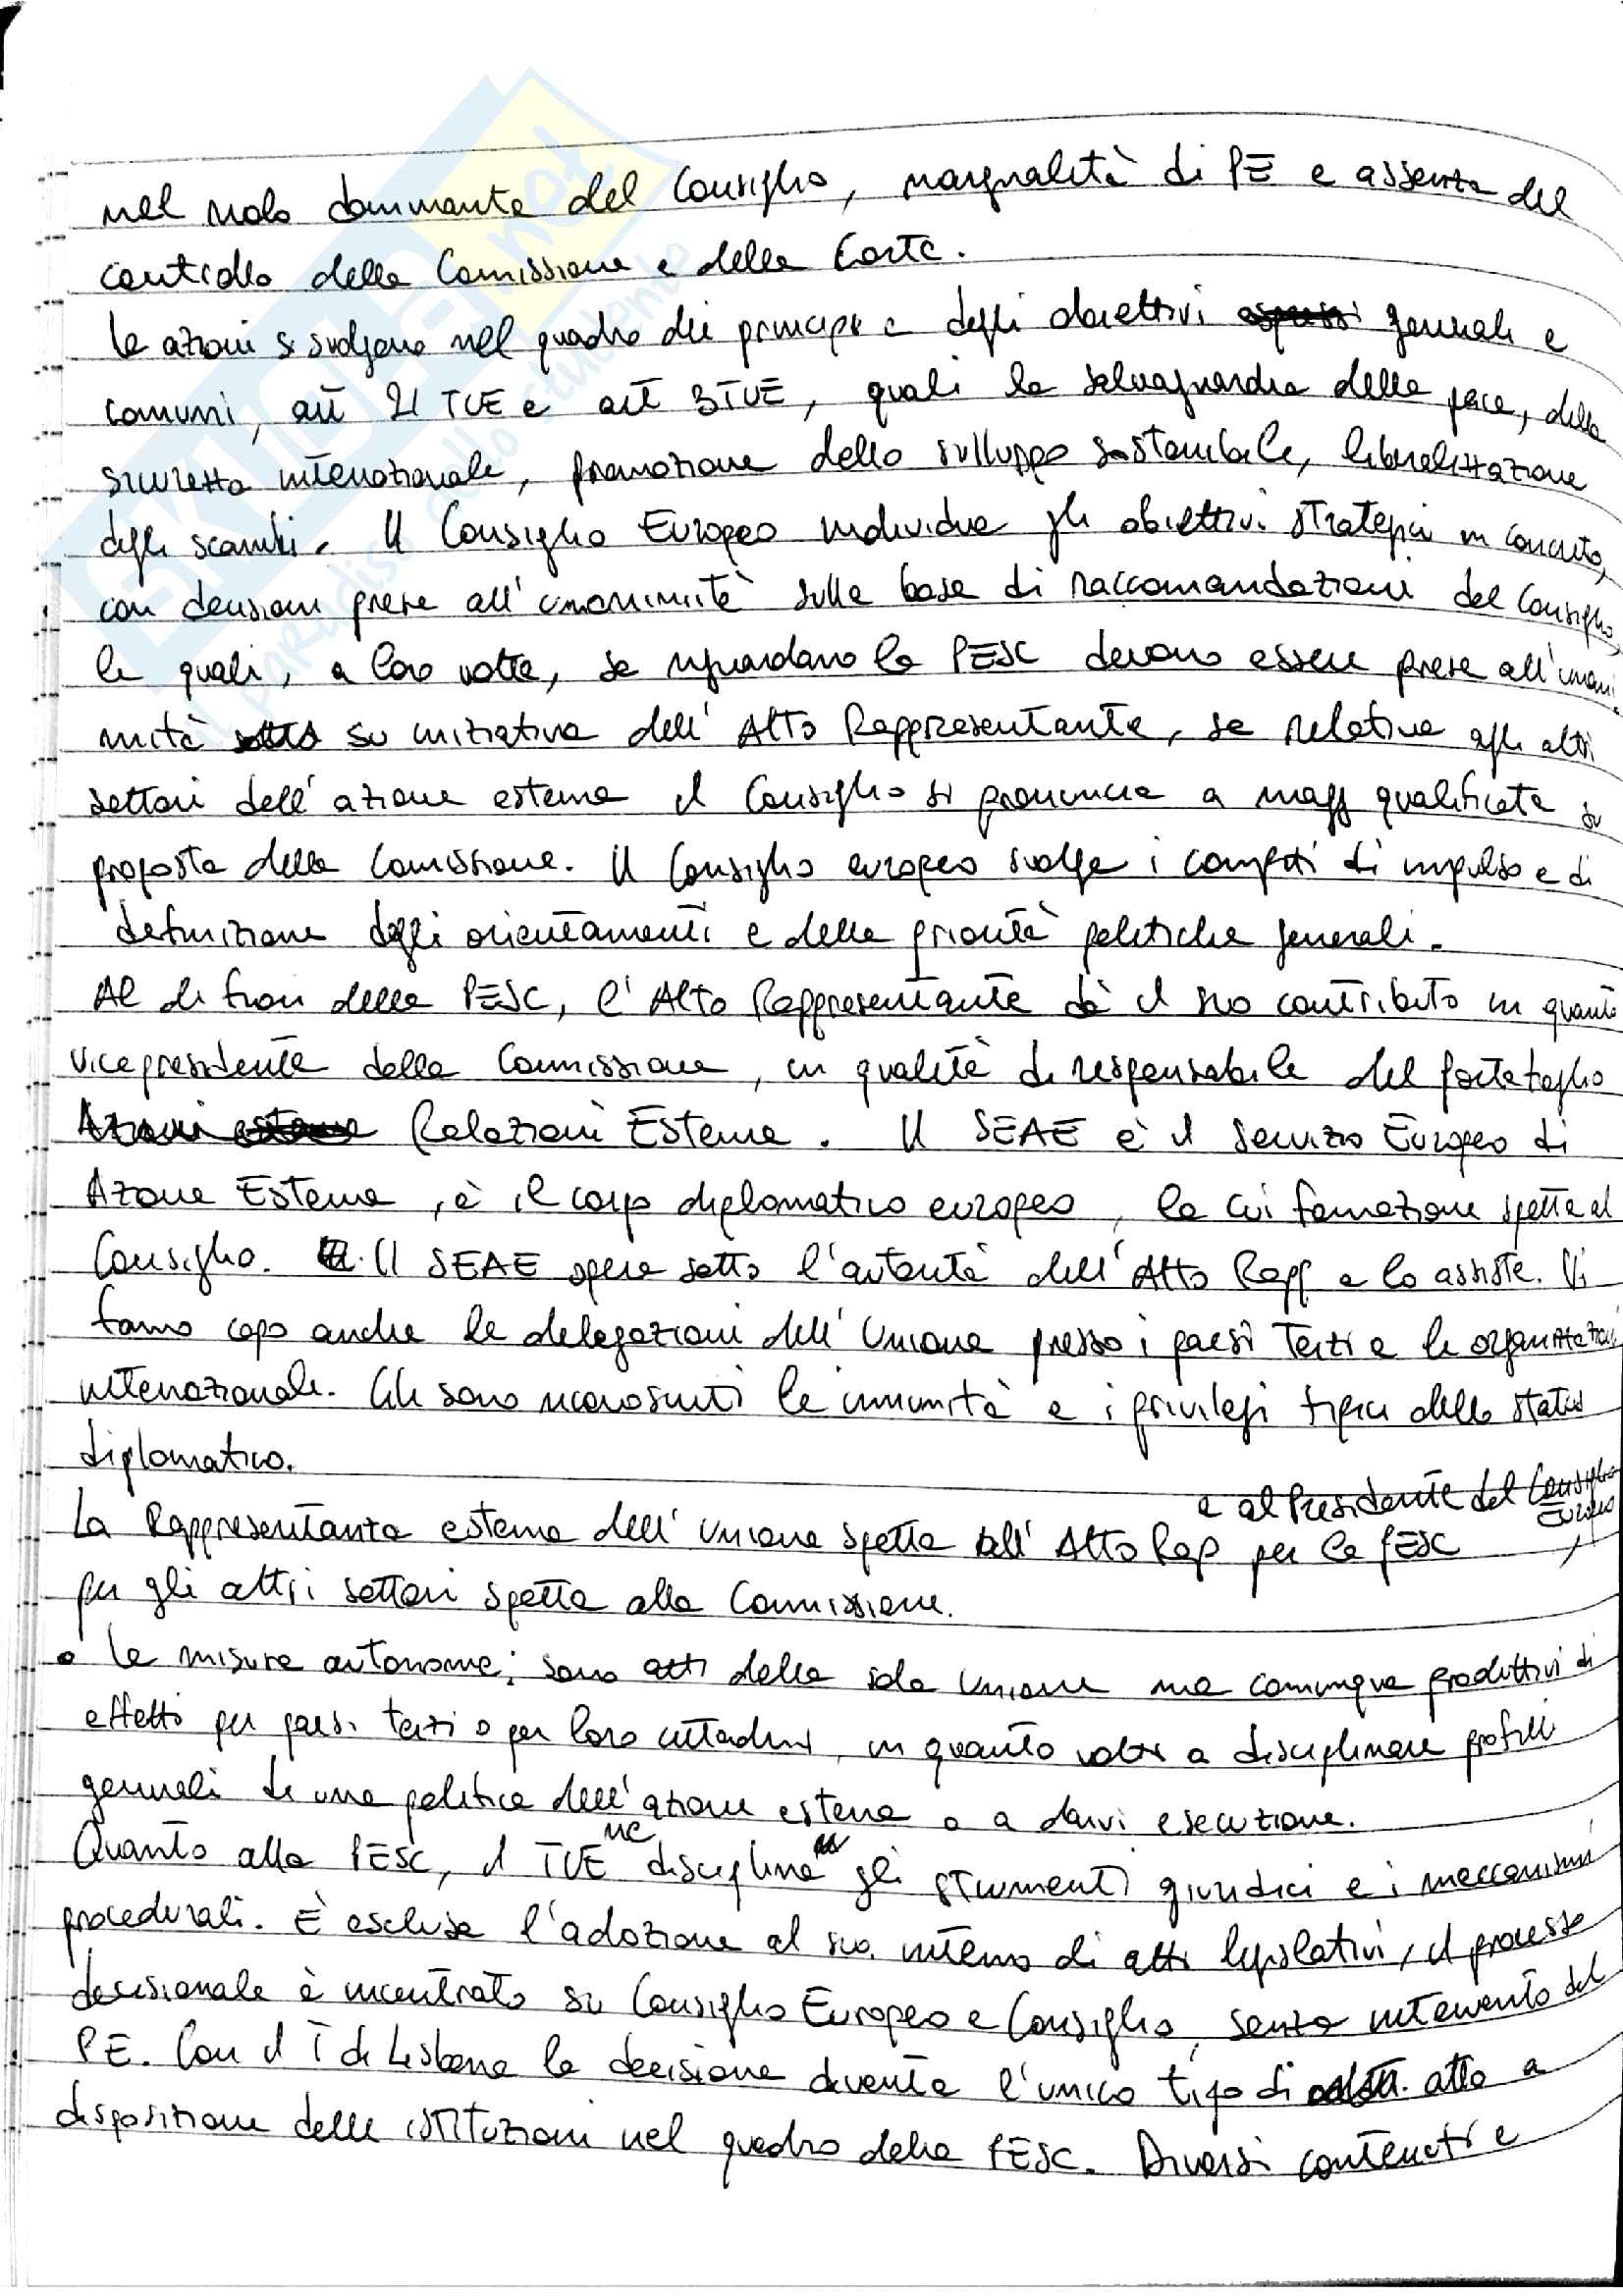 nel ruolo dominante del Consiglio, marginalità di PE e assenza del
controllo della Comissione e della Corte.
Le azioni si svolgono nel quadro dei principi e degli obiettivi generali e
comuni, art 21 TUE e art 3TUE, quali la salvaguardia della pace, della
sicurezza internazionale, promozione dello sviluppo sostenibile, liberalizzazione
degli scambi. Il Consiglio Europeo individua gli obiettivi strategici in concreto,
con decisioni prese all'unanimità sulla base di raccomandazioni del Consiglio,
le quali, a loro volta, se riguardano la PESC devono essere prese all'unani
mità su iniziativa dell'Alto Rappresentante, se relative agli altri
settori dell'azione esterna il Consiglio si pronuncia a magg qualificata su
proposta della Comissione. Il Consiglio europeo svolge i compiti di impulso e di
definizione degli orientamenti e delle priorità politiche generali.
Al di fuori della PESC, l'Alto Rappresentante dà il suo contributo in quanto
vicepresidente della Commissione, in qualità di responsabile del portafoglio
Relazioni Esterne. Il SEAE è il Servizio Europeo di
Azione Esterna, è il corpo diplomatico europeo, la cui formazione spetta al
Consiglio. Il SEAE opera sotto l'autorità dell'Alto Rapp e lo assiste. Vi
fanno capo anche le delegazioni dell'Unione presso i paesi terzi e le organizzazioni
internazionale. Gli sono riconosciuti le immunità e i privilegi tipici dello status
diplomatico.
e al Presidente del Consiglio Europeo
La Rappresentanza esterna dell'Unione spetta all'Alto Rap per la PESC,
per gli altri settori spetta alla Commissione.
• Le misure autonome: sono atti della sola Unione ma comunque produttivi di
effetti per paesi terzi o per loro cittadini, in quanto volti a disciplinare profili
generali di una politica dell'azione esterna o a darvi esecuzione.
Quanto alla PESC, il TUE ne disciplina gli strumenti giuridici e i meccanismi
procedurali. È esclusa l'adozione al suo interno di atti legislativi, il processo
decisionale è incentrato su Consiglio Europeo e Consiglio, senza intervento del
PE. Con il T di Lisbona la decisione diventa l'unico tipo di atto a
disposizione delle istituzioni nel quadro della PESC. Diversi contenuti e